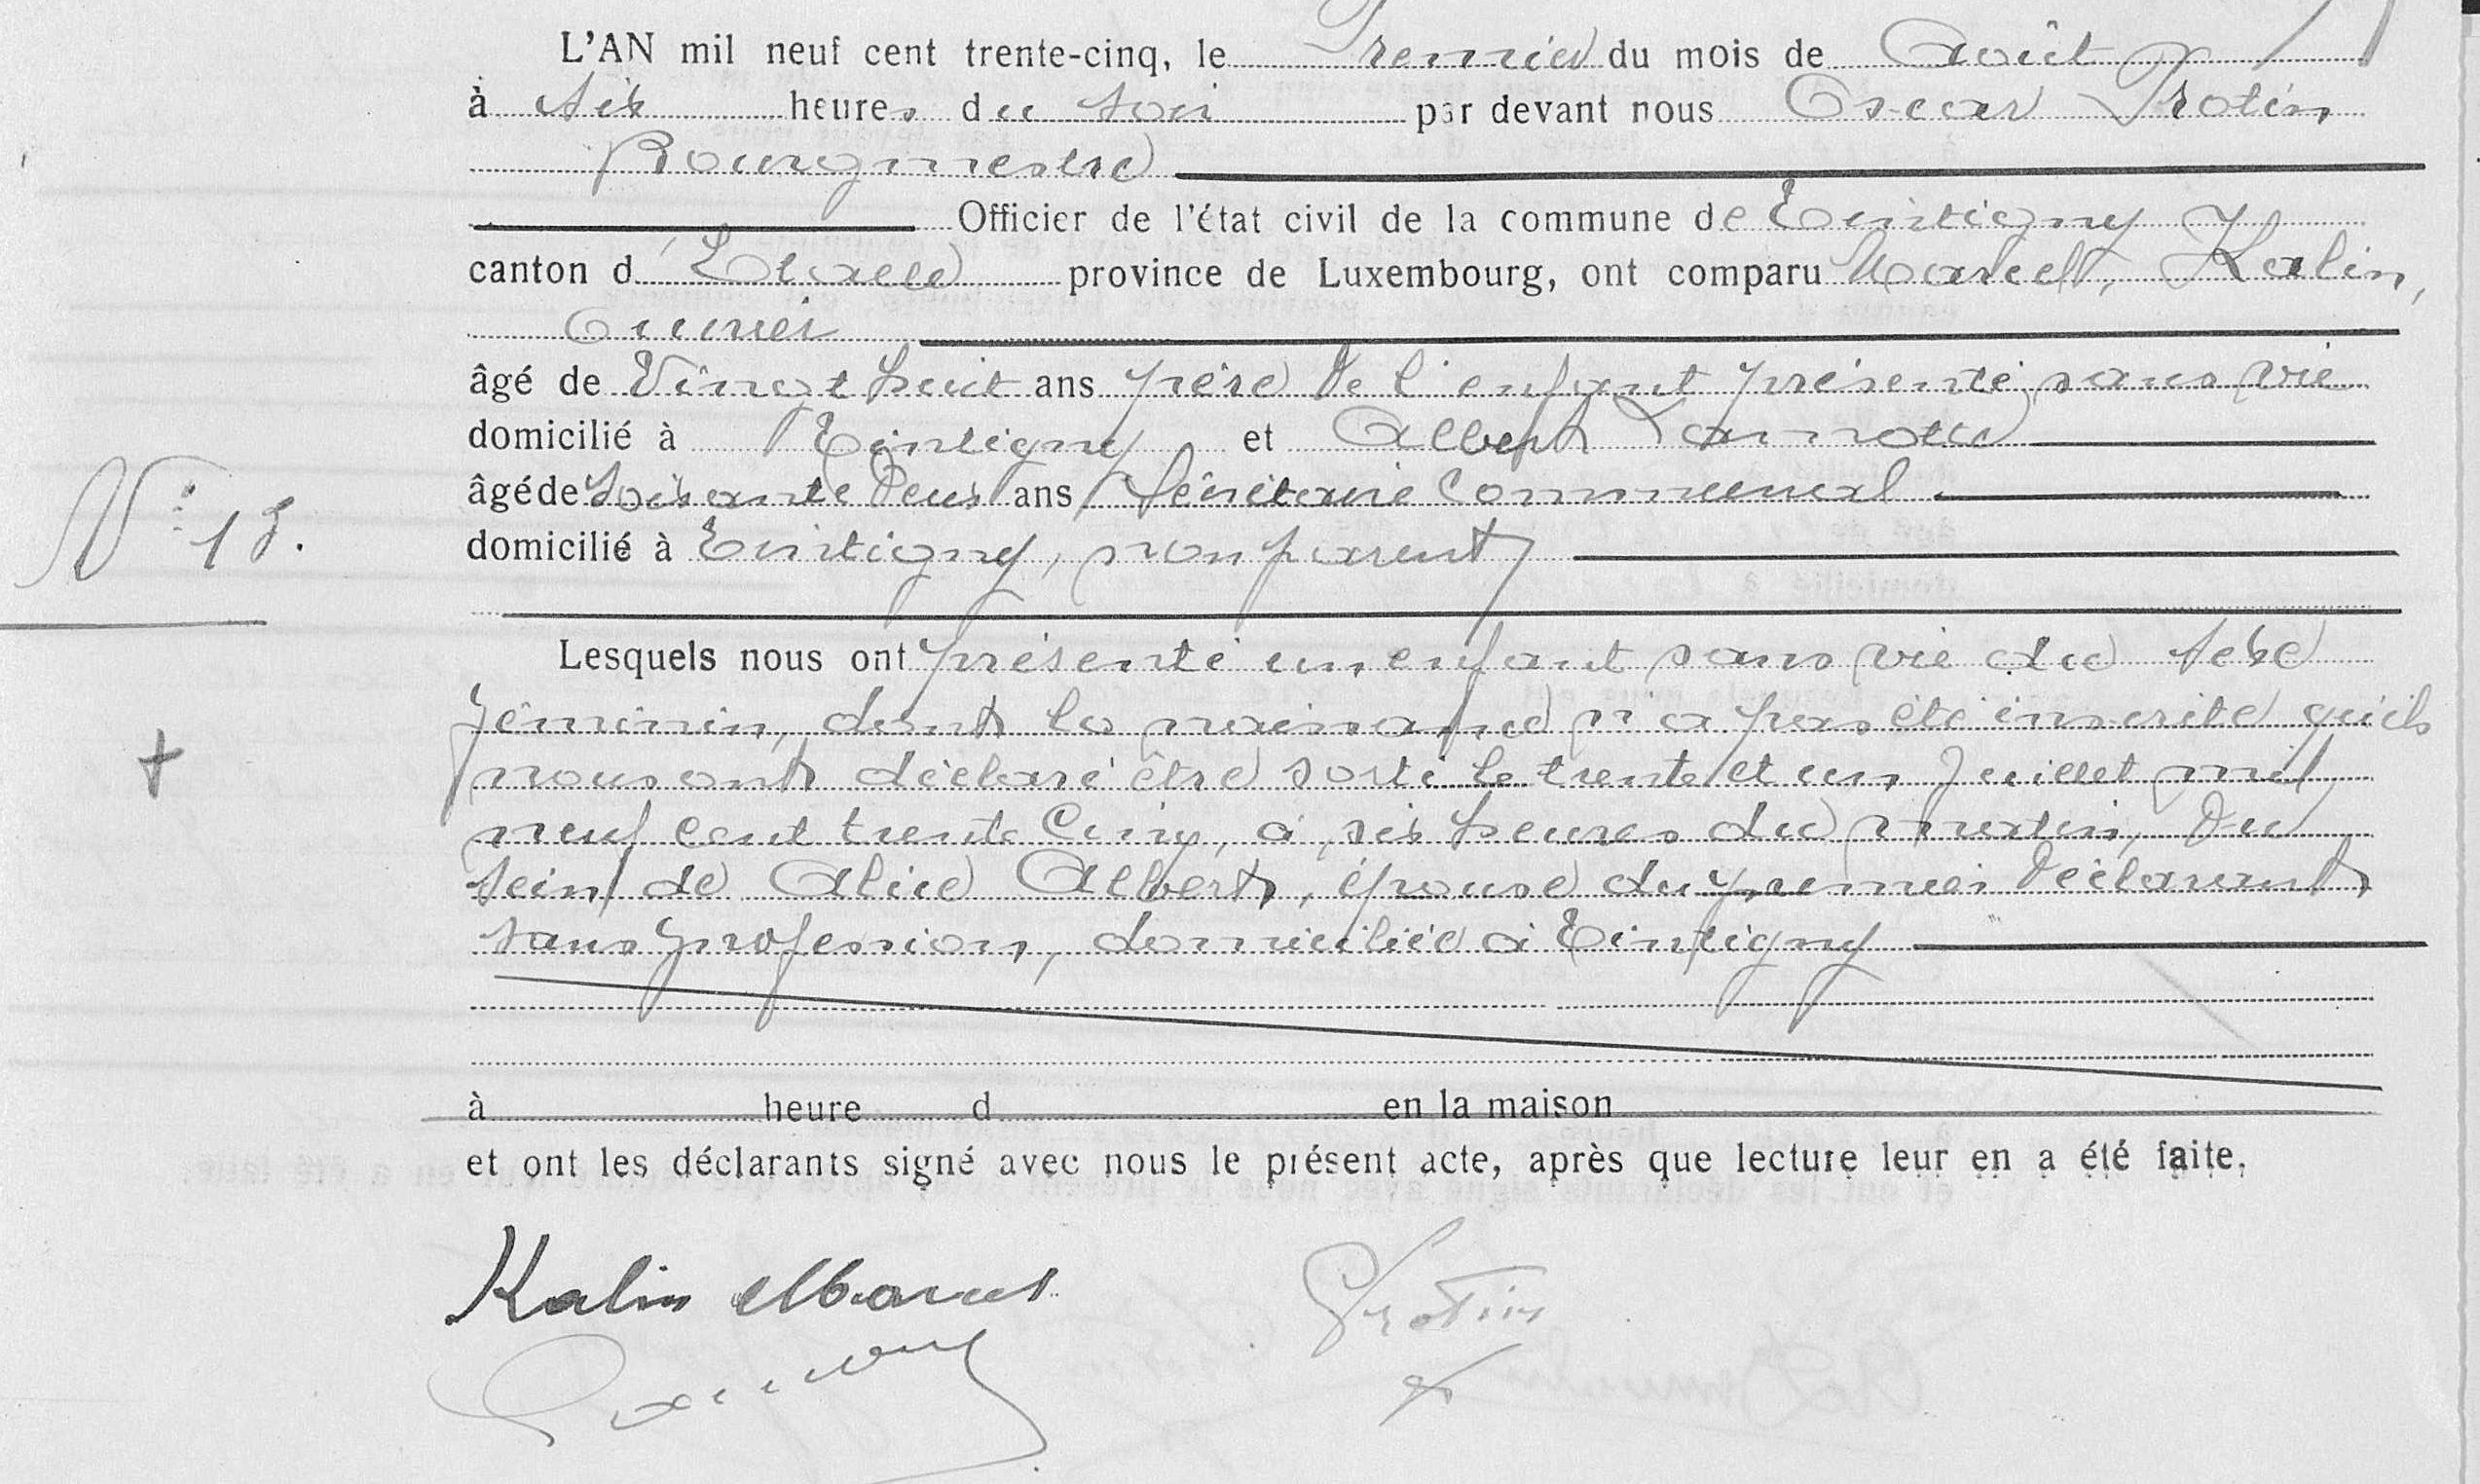 L'AN mil neuf cent trente-cinq, le Premier du mois de Août
à six heures du soir par devant nous Oscar Protin
Bourgmestre
Officier de l'état civil de la commune de Tintigny
canton d'Etalle province de Luxembourg, ont comparu Marcel, Kalin,
Ouvrier
âgé de Vingt huit ans père de l'enfant présenté sans vie
domicilié à Tintigny et Albert Lannotte
âgé de Soixante deux ans Secrétaire Communal
domicilié à Tintigny, non parent
N° 15.
Lesquels nous ont présenté un enfant sans vie du sexe
féminin, dont la naissance n'a pas été inscrite qu'ils
nous ont déclaré être sorti le trente et un Juillet mil
neuf cent trente Cinq, à six heures du matin, du
sein de Alice Albert, épouse du premier déclarant
sans profession, domiciliée à Tintigny
à heure d en la maison
et ont les déclarants signé avec nous le présent acte, après que lecture leur en a été faite.
Kalin Marcel Protin